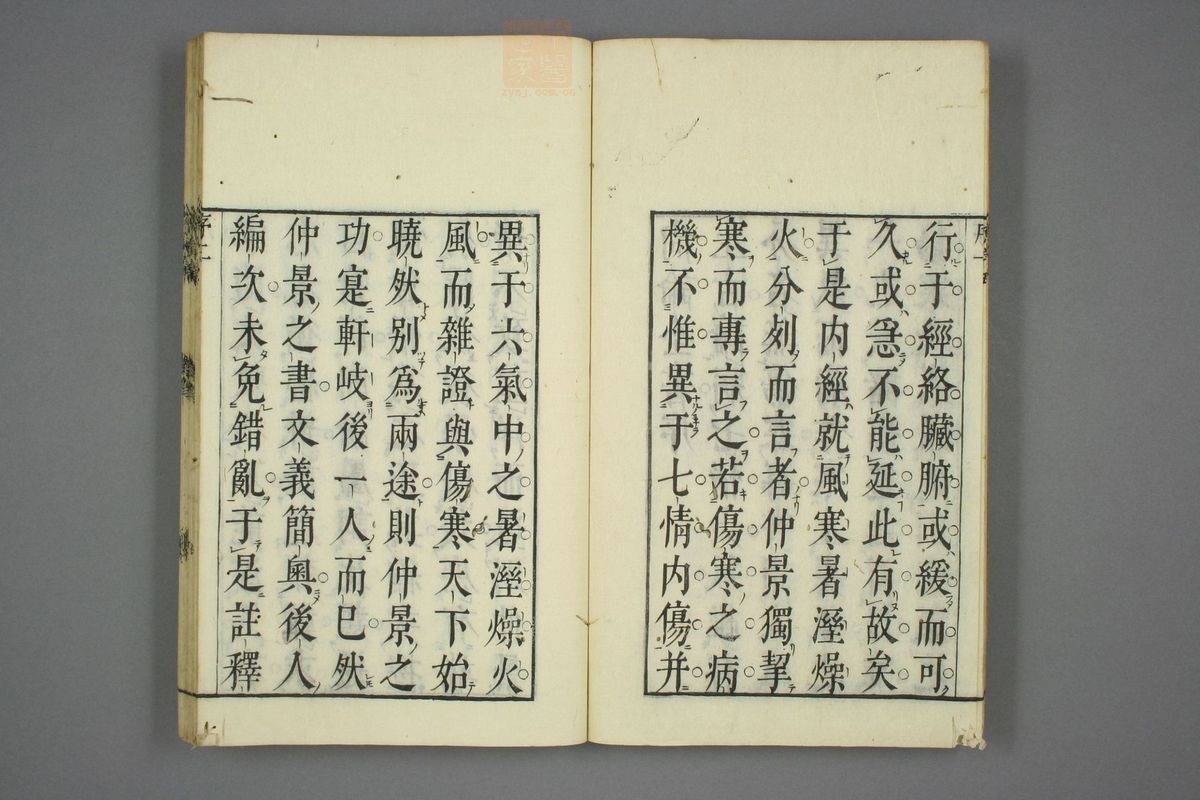 行于經絡臟腑或緩而可
久或急不能延此有故矣
于是内經就風寒暑溼燥
火分列而言者仲景獨挈
寒而專言之若傷寒之病
機不惟異于七情内傷并
異于六氣中之暑溼燥火
風而雜證與傷寒天下始
曉然别爲兩途則仲景之
功寔軒岐後一人而已然
仲景之書文義簡奥後人
編次未免錯亂于是註釋
序二
zysj.com.cn